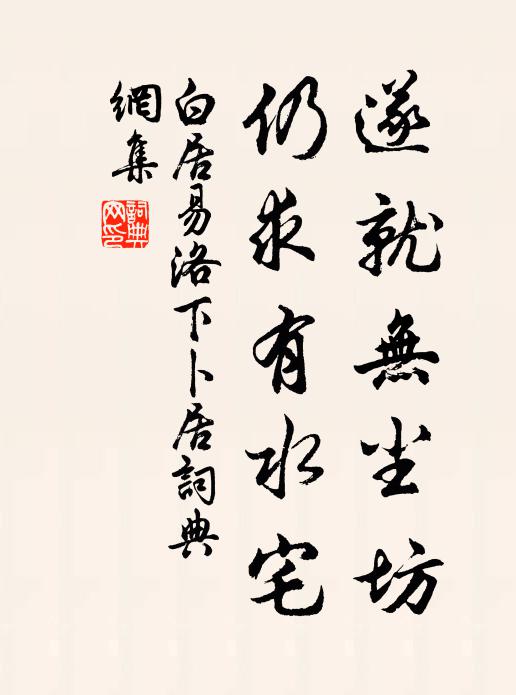 遂就無尘坊
仍求有水宅
白居易洛下卜居詞典
網集
詞典
网印